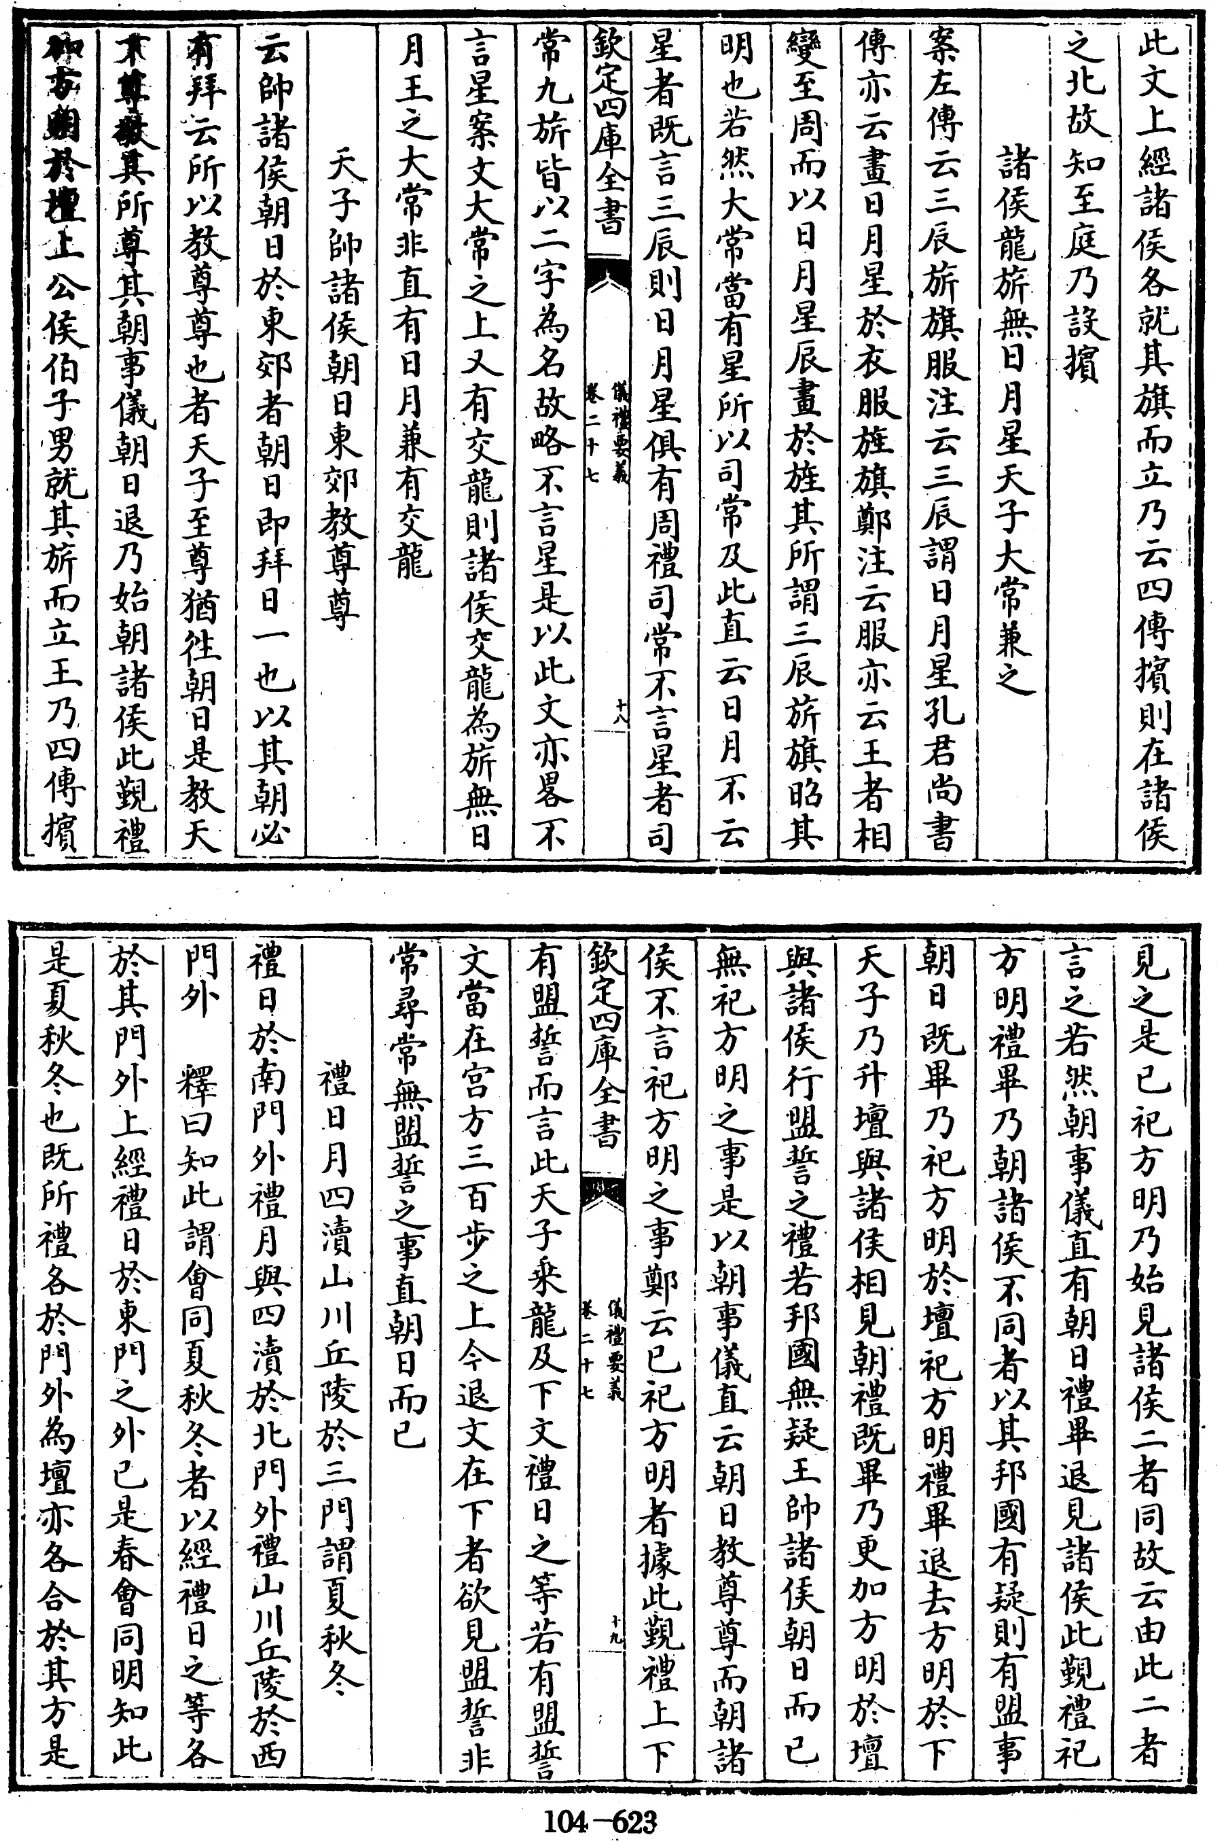 此文上經諸侯各就其旗而立乃云四傳擯則在諸侯
之北故知至庭乃設擯
諸侯龍旂無日月星天子大常兼之
案左傳云三辰旂旗服注云三辰謂日月星孔君尚書
傳亦云畫日月星於衣服旌旗鄭注云服亦云王者相
變至周而以日月星辰畫於旌其所謂三辰旂旗昭其
明也若然大常當有星所以司常及此直云日月不云
星者既言三辰則日月星俱有周禮司常不言星者司
欽定四庫全書
儀禮要義
卷二十七
十八
常九旂皆以二字為名故略不言星是以此文亦畧不
言星案文大常之上又有交龍則諸侯交龍為旂無日
月王之大常非直有日月兼有交龍
天子帥諸侯朝日東郊教尊尊
云帥諸侯朝日於東郊者朝日即拜日一也以其朝必
有拜云所以教尊尊也者天子至尊猶徃朝日是教天
下尊敬其所尊其朝事儀朝日退乃始朝諸侯此覲禮
加方明於壇上公侯伯子男就其旂而立王乃四傳擯
見之是已祀方明乃始見諸侯二者同故云由此二者
言之若然朝事儀直有朝日禮畢退見諸侯此覲禮祀
方明禮畢乃朝諸侯不同者以其邦國有疑則有盟事
朝日既畢乃祀方明於壇祀方明禮畢退去方明於下
天子乃升壇與諸侯相見朝禮既畢乃更加方明於壇
與諸侯行盟誓之禮若邦國無疑王帥諸侯朝日而已
無祀方明之事是以朝事儀直云朝日教尊尊而朝諸
侯不言祀方明之事鄭云已祀方明者據此覲禮上下
欽定四庫全書
儀禮要義
卷二十七
十九
有盟誓而言此天子乘龍及下文禮日之等若有盟誓
文當在宮方三百步之上今退文在下者欲見盟誓非
常尋常無盟誓之事直朝日而已
禮日月四瀆山川丘陵於三門謂夏秋冬
禮日於南門外禮月與四瀆於北門外禮山川丘陵於西
門外　釋曰知此謂會同夏秋冬者以經禮日之等各
於其門外上經禮日於東門之外已是春會同明知此
是夏秋冬也既所禮各於門外為壇亦各合於其方是
104-623